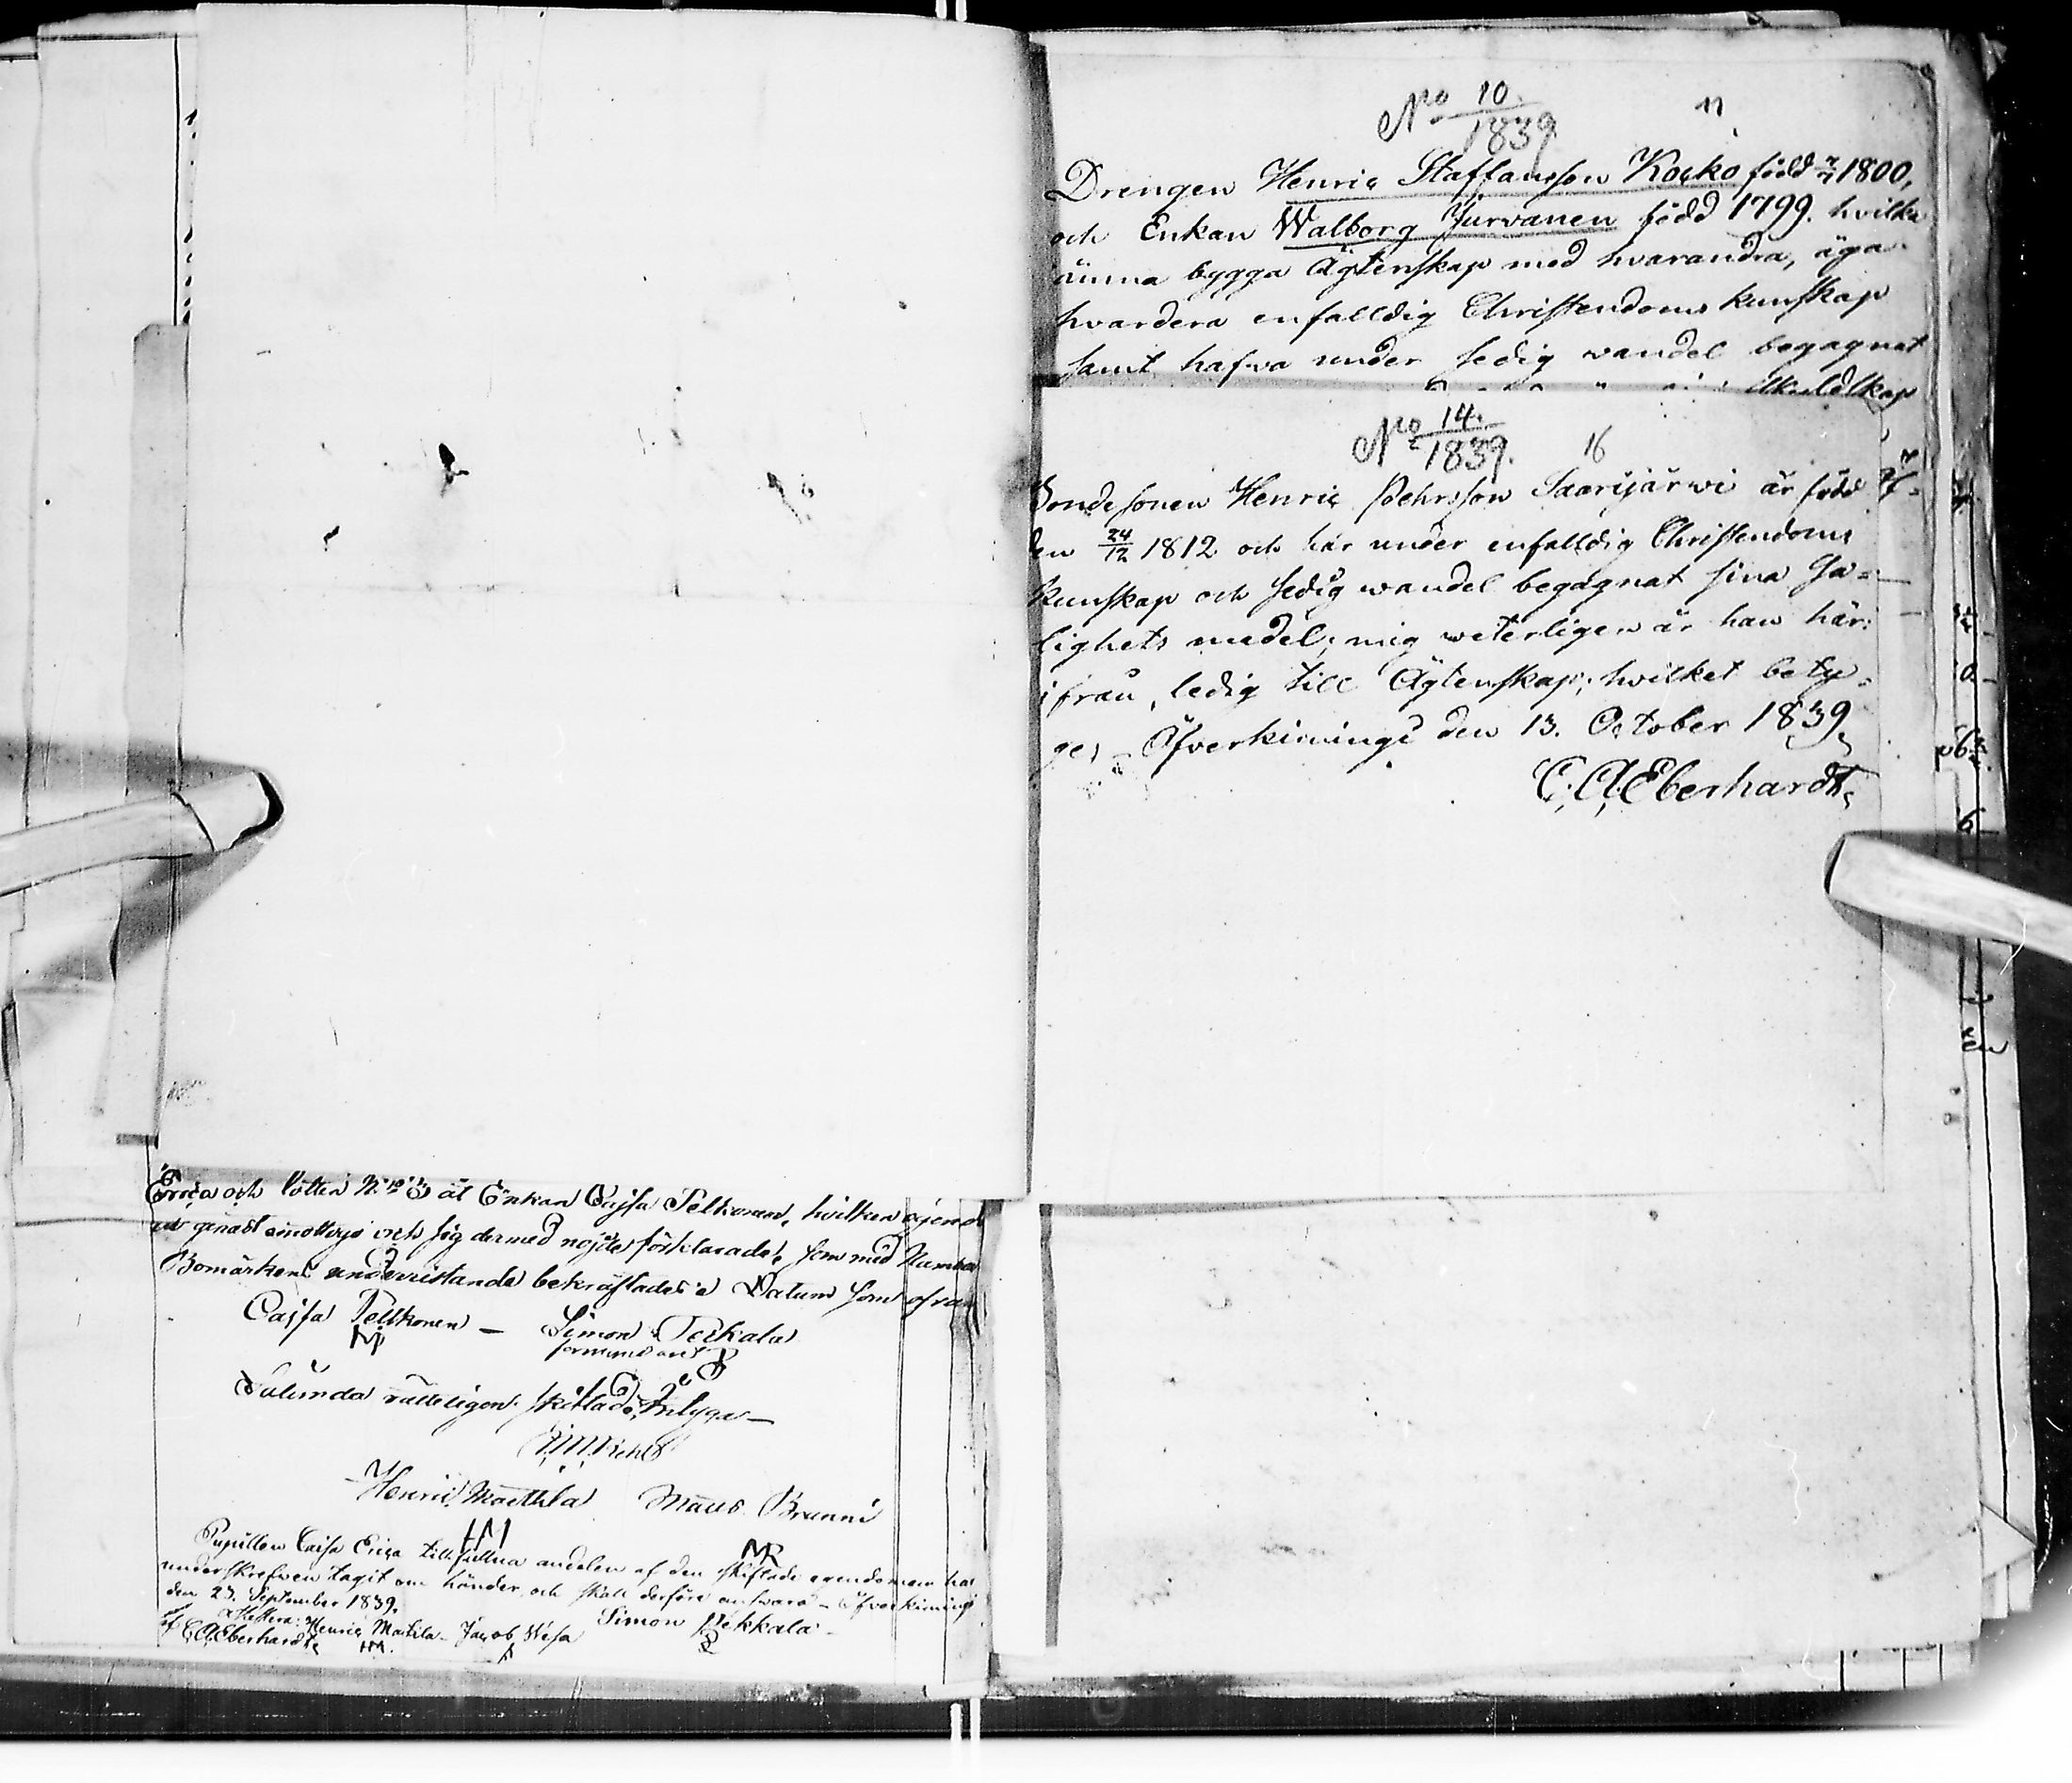 Erica och lotten N:ro 3 åt Enkan Cajsa Pelkonen, hvilken egend
genast emottogs och sig dermed nöjde förklarade, som med Namn
Bomärkens underristande bekräftades Datum som ofvan
Cajsa Pelkonen — Simon Pekkala
förmyndare
Sålunda rätteligen skiftadt, betyga —
Henric Mattila Maus Brunni
HM MR
Pupillen Caisa Erica tillfallna andelen af den skiftade egendomen har
underskrefven tagit om händer och skall derföre answara – Öfverkiminge
den 23. September 1839.
Simon Pekkala
Attestera: Henric Mattila – Jacob Wesa
C. A. Eberhardt HM.
No 10./1839 11
Drengen Henric Staffansson Kocko född 7/7 1800,
och Enkan Walborg Jurvanen född 1799. hvilka
ämna bygga Ägtenskap med hvarandra, äga
hvardera enfalldig Christendoms kunskap
samt hafva under sedig vandel begagnat
No 14./1839. 16
Bonde sonen Henric Pehrsson Saarijärwi är född
den 24/12 1812 och har under enfalldig Christendoms
kunskap och sedig wandel begagnat sina Sa=
lighets medel; mig weterligen är han här=
ifrån, ledig till Ägtenskap; hvilket bety=
ges Öfverkiminge den 13. October 1839.
C. A. Eberhardt.